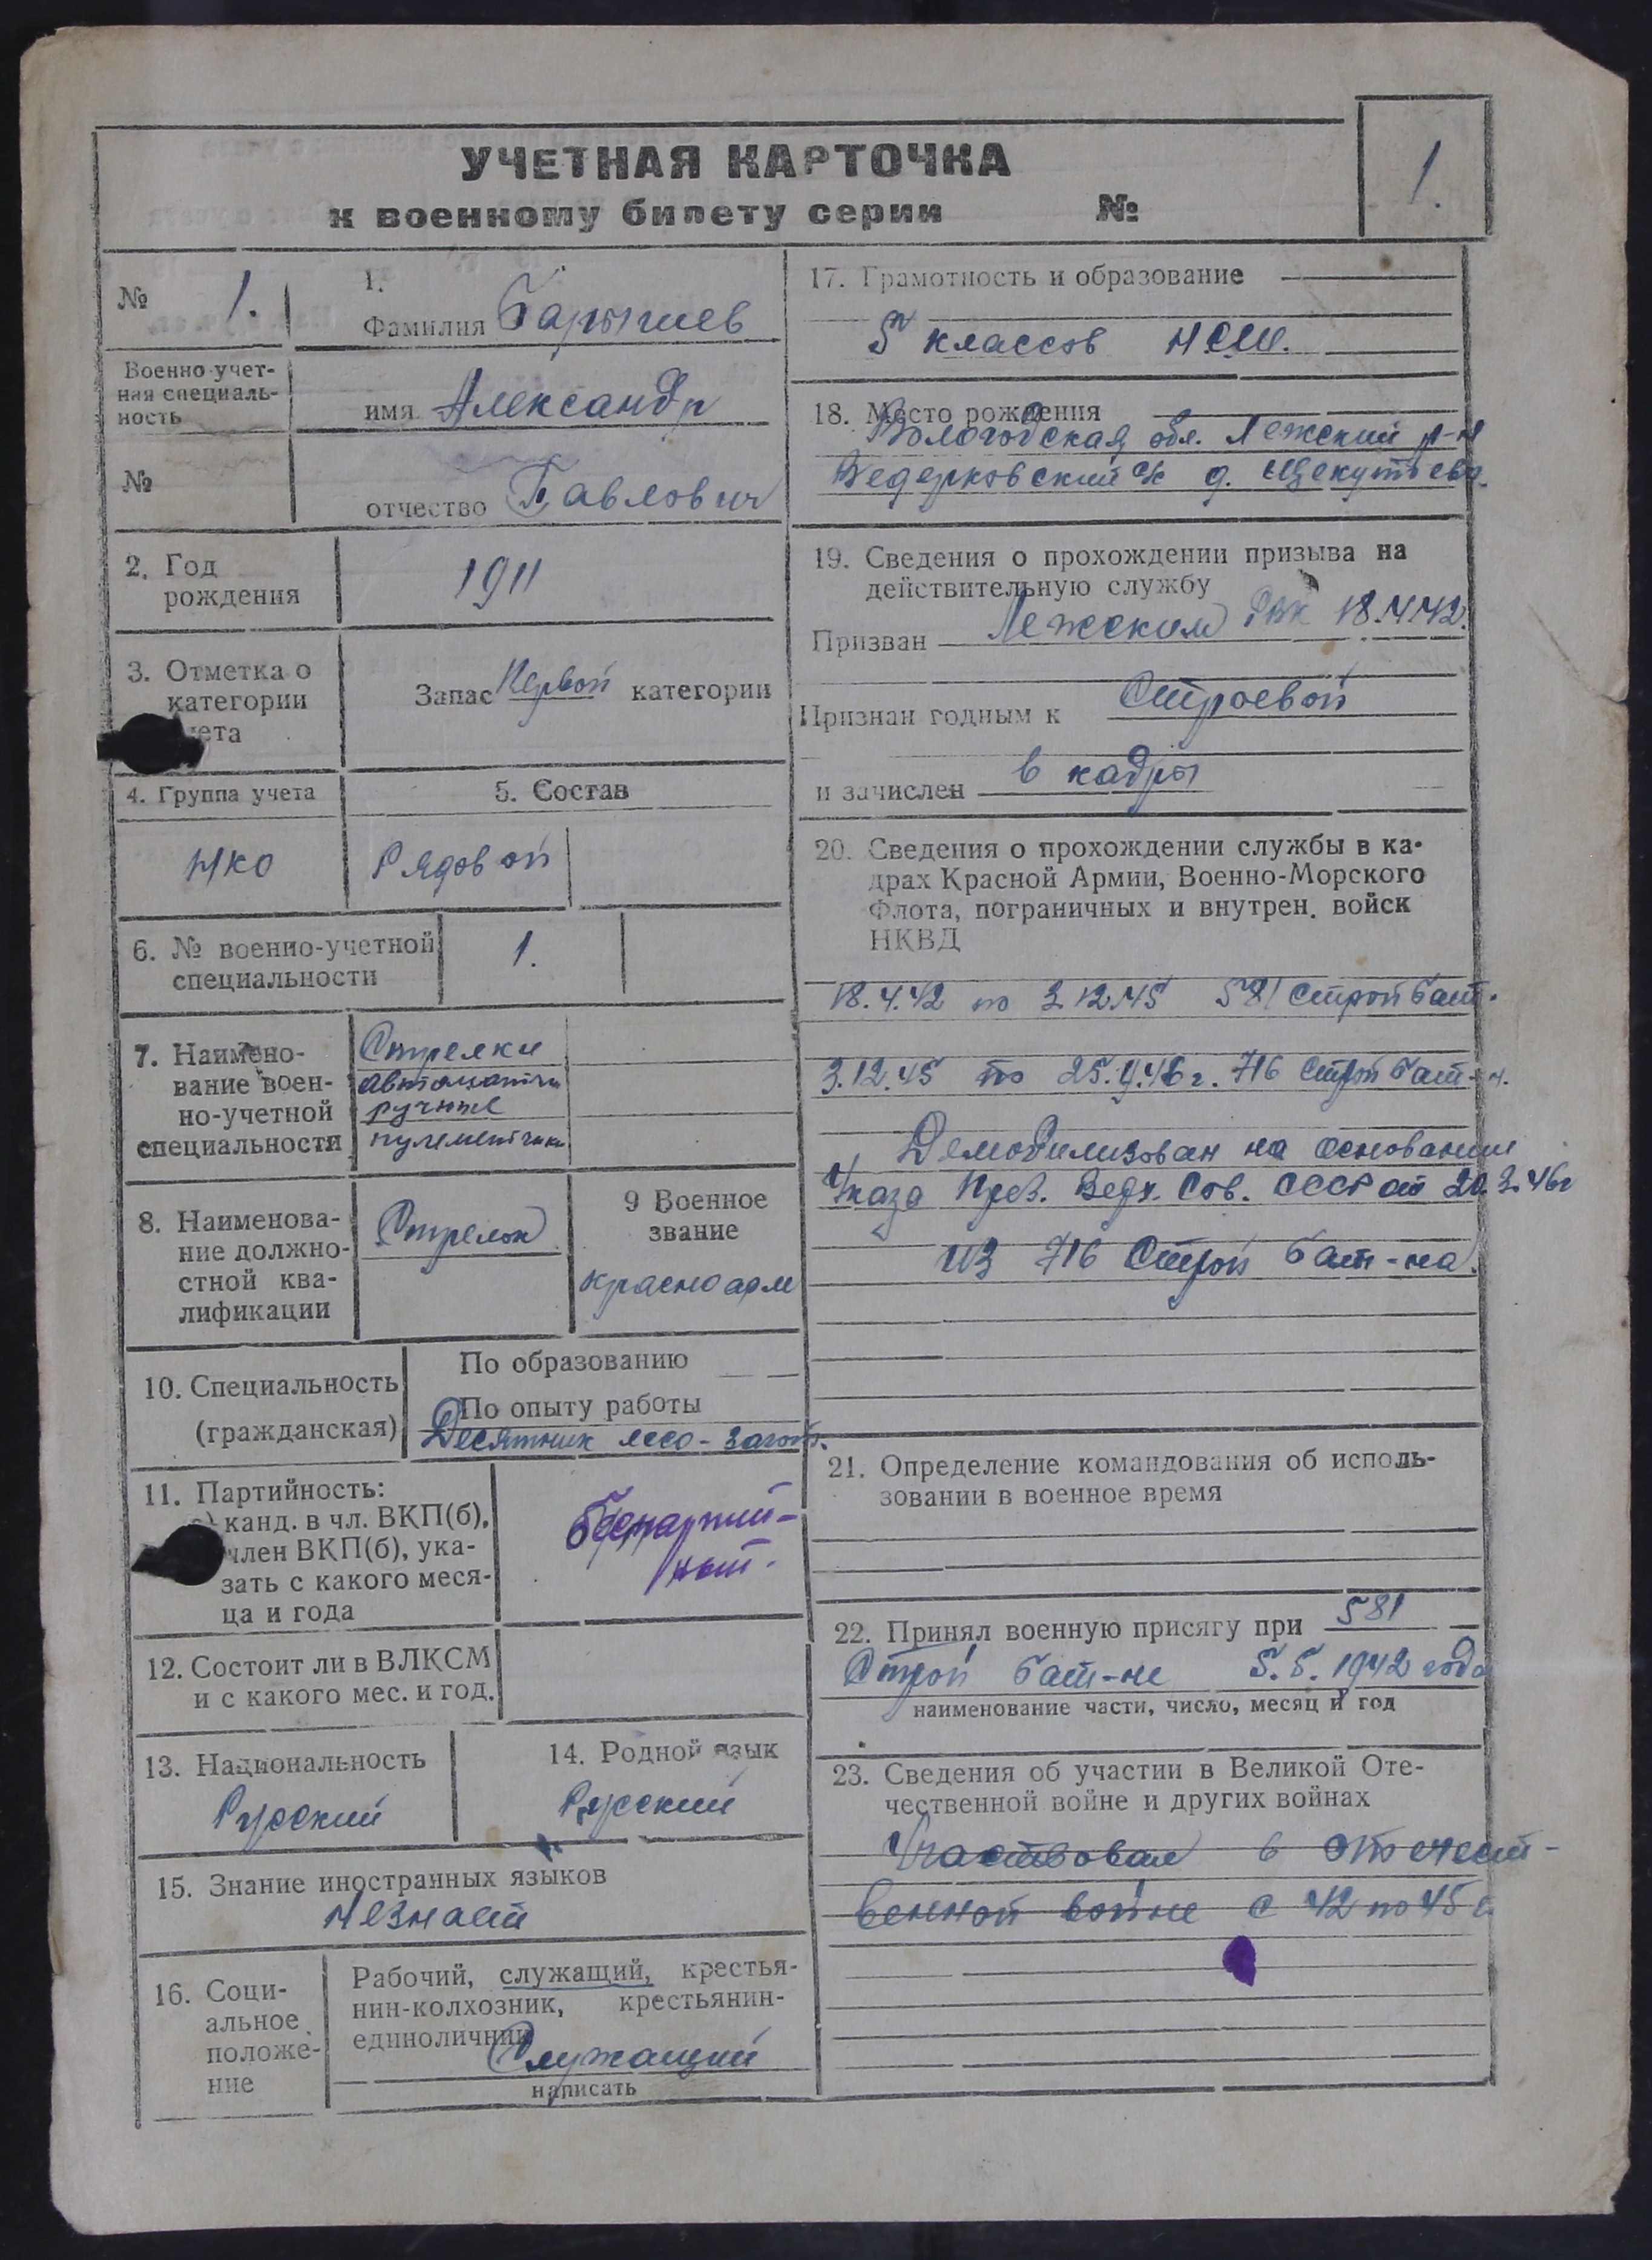 УЧЕТНАЯ КАРТОЧКА
к военному билету серии №
1.
№ 1.
Военно-учет-
ная специаль-
ность
№
1.
Фамилия Барышев
имя Александр
отчество Павлович
2. Год
рождения
1911
3. Отметка о
категории
чета
Запас Первой категории
4. Группа учета
НКО
5. Состав
Рядовой
6. № военно-учетной
специальности
1.
7. Наимено-
вание воен-
но-учетной
специальности
Стрелки
автоматчи
ручные
пулеметчики
8. Наименова-
ние должно-
стной ква-
лификации
Стрелок
9 Военное
звание
красноарм
10. Специальность
(гражданская)
По образованию
По опыту работы
Десятник лесо-загот.
11. Партийность:
канд. в чл. ВКП(б),
член ВКП(б), ука-
зать с какого меся-
ца и года
беспартий-
ный.
12. Состоит ли в ВЛКСМ
и с какого мес. и год.
13. Национальность
Русский
14. Родной язык
Русский
15. Знание иностранных языков
Незнает
16. Соци-
альное
положе-
ние
Рабочий, служащий, крестья-
нин-колхозник, крестьянин-
единоличник
Служащий
написать
17. Грамотность и образование
5 классов НСШ.
18. Место рождения
Вологодская обл. Лежский р-н
Ведерковский с/с д. Щекутьево.
19. Сведения о прохождении призыва на
действительную службу
Призван Лежским РВК 18.4.42.
Признан годным к Строевой
и зачислен в кадры
20. Сведения о прохождении службы в ка-
драх Красной Армии, Военно-Морского
Флота, пограничных и внутрен. войск
НКВД
18.4.42 по 3.12.45 581 Строй бат.
3.12.45 по 25.4.46 г. 716 Строй бат-н.
Демобилизован на основании
Указа През. Верх. Сов. СССР от 20.3.46г
из 716 Строй бат-на.
21. Определение командования об исполь-
зовании в военное время
22. Принял военную присягу при 581
Строй бат-не 5.5.1942 года
наименование части, число, месяц и год
23. Сведения об участии в Великой Оте-
чественной войне и других войнах
Участвовал в отечест-
венной войне с 42 по 45 г.